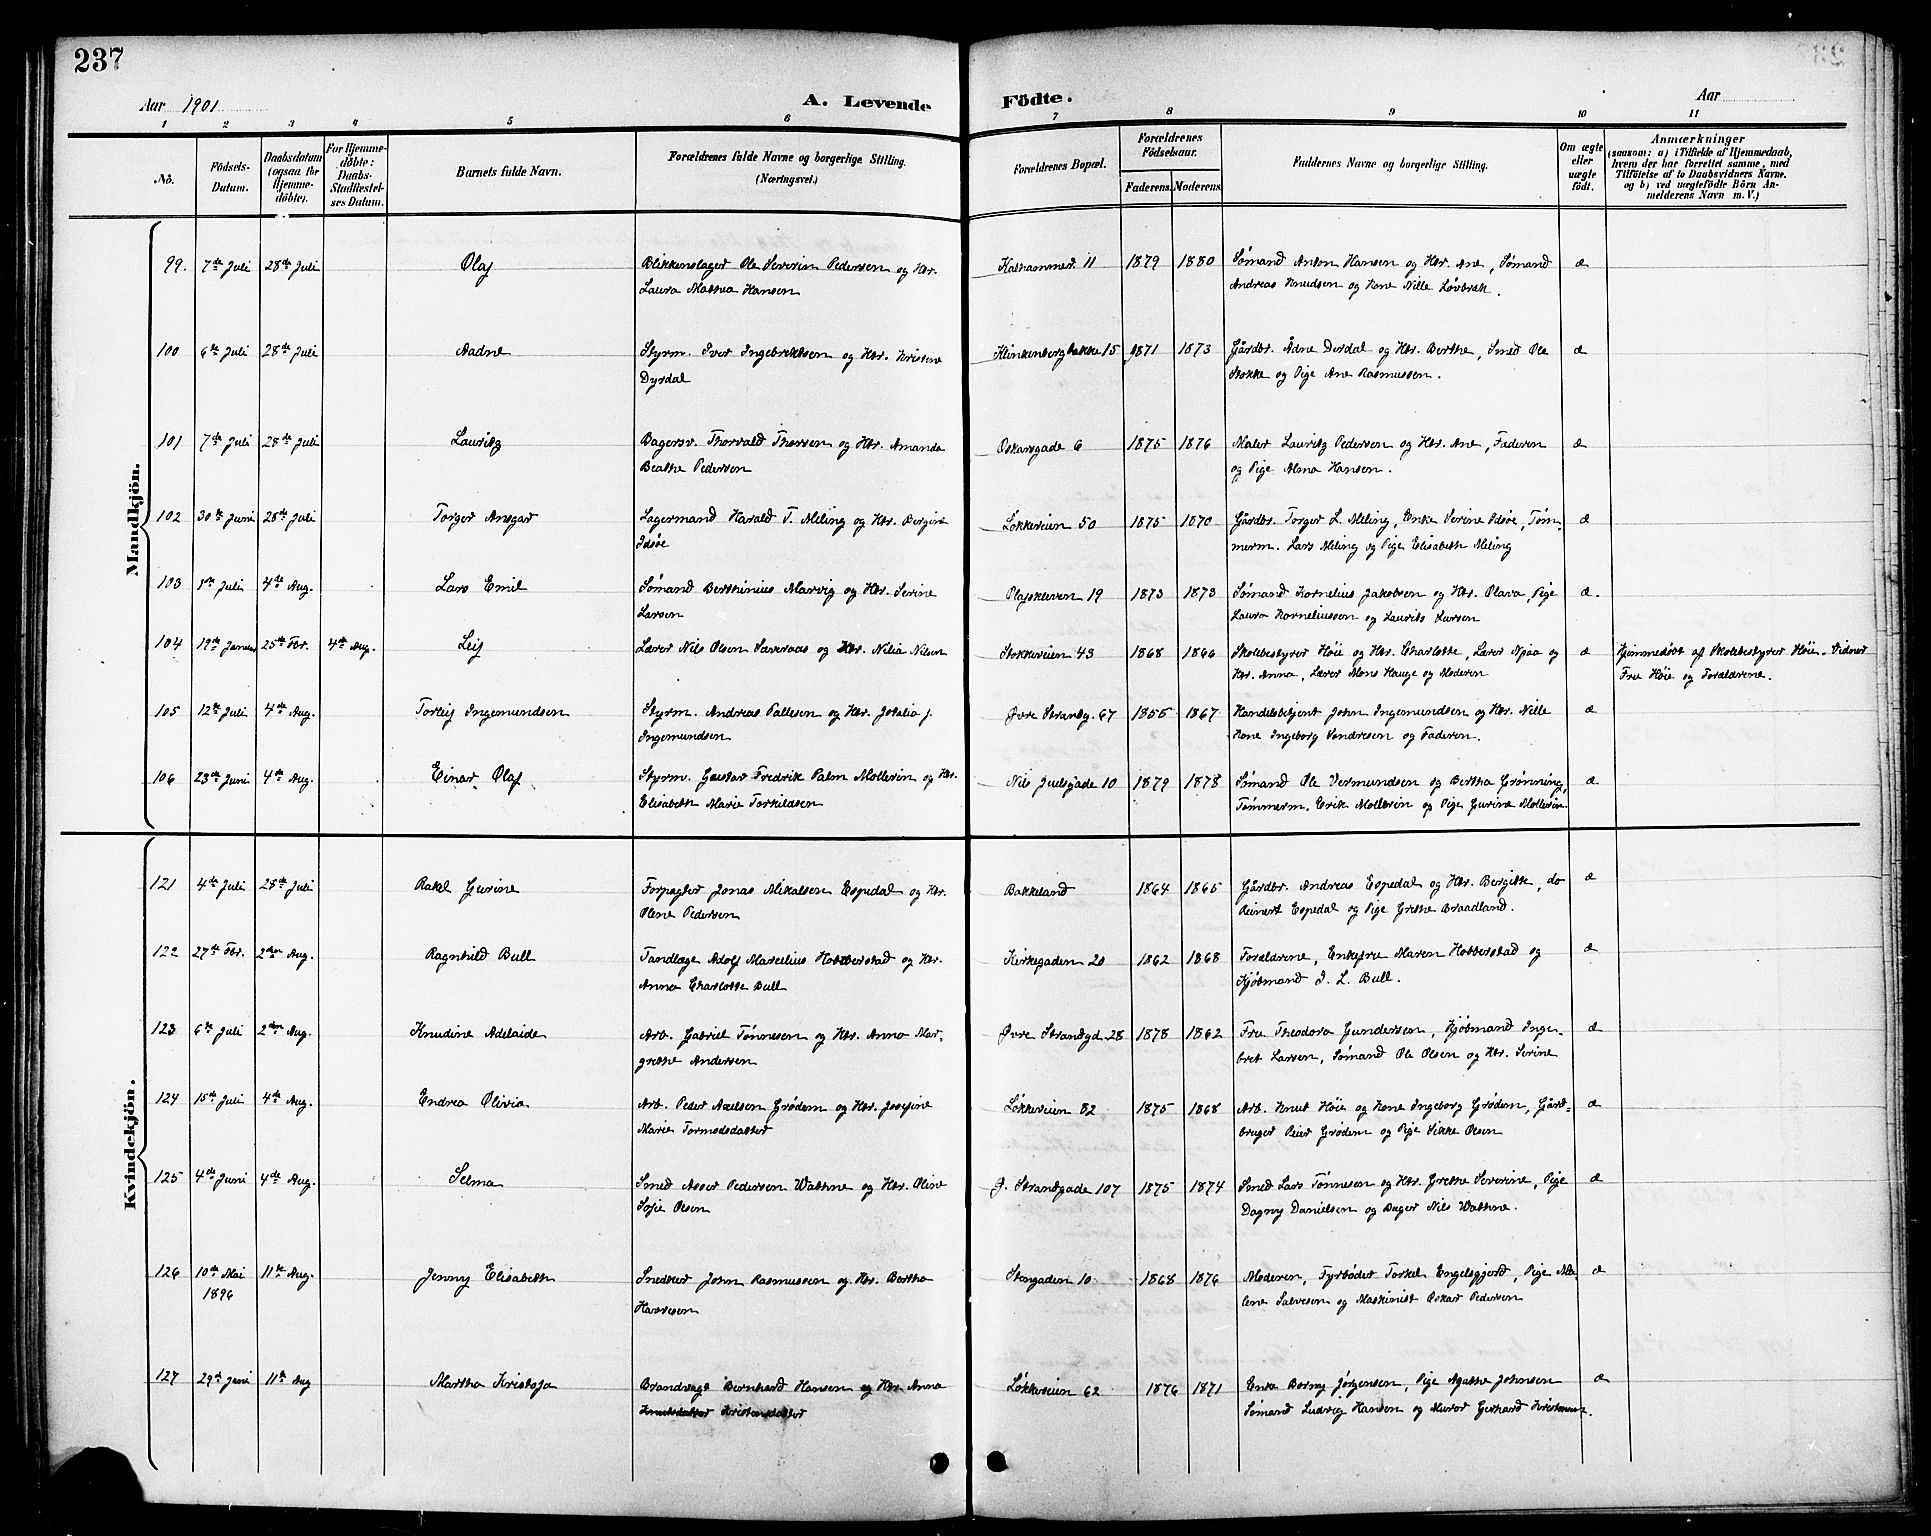 237
Aar 1901
A. Levende
Födte.
Aar
1 2 3 4 5 6 7 8 9 10 11
No.
Födsels-Datum.
Daabsdatum (ogsaa for Hjemmedøbte).
For Hjemmedøbte: Daabs-Stadfæstelses Datum.
Barnets fulde Navn.
Forældrenes fulde Navne og borgerlige Stilling. (Næringsvei.)
Forældrenes Bopæl.
Forældrenes Födselsaar.
Faderens. Moderens.
Faddernes Navne og borgerlige Stilling.
Om ægte eller uægte født.
Anmærkninger
(saasom: a) i Tilfælde af Hjemmedaab,
hvem der har forrettet samme, med
Tilføielse af to Daabsvidners Navne.
og b) ved uægtefødte Börn An-
melderens Navn m. V.)
Mandkjön.
99. 7de Juli 28de Juli Olaf Blikkenslager Ole Severin Pedersen og Htr. Kalhammer. 11 1879 1880 Sømand Anton Hansen og Htr. Ane, Sømand æ
Laura Mathea Hansen Andreas Knudsen og Kone Nille Løvbræk.
100 6te Juli 28de Juli Aadne Styrm. Iver Ingebrektsen og Htr. Kristine Klinkenbergbakke 15 1871 1873 Gårdbr. Ådne Dirdal og Htr. Berthe, Smed Ole æ
Dyrdal Stokke og Pige Ane Rasmussen.
101 7de Juli 28de Juli Lauritz Bagersv. Thorvald Thorsen og Htr. Amanda Oskarsgade 6 1875 1876 Maler Lauritz Pedersen og Htr. Ane, Faderen æ
Beathe Pedersen og Pige Alma Hansen.
102 30te Juni 28de Juli Torger Ansgar Lagermand Harald T. Meling og Htr. Bergine Løkkeveien 50 1875 1870 Gårdbr. Torger L. Meling, Enke Serine Idsøe, Tøm- æ
Idsøe merm. Lars Meling og Pige Elisabeth Meling
103 1ste Juli 4de Aug. Lars Emil Sømand Berthinius Marvig og Htr. Serine Olafskleven 19 1873 1873 Sømand Kornelius Jakobsen og Htr. Olava, Pige æ.
Larsen Laura Korneliussen og Laurits Larsen
104 19de Januar 25de Fbr. 4de Aug. Leif Lærer Nils Olsen Sæveraas og Htr. Nilia Nilsen Stokkeveien 43 1868 1866 Skolebestyrer Høie og Htr. Charlotte, Lærer Njaa og æ Hjemmedøbt af Skolebestyrer Høie. Vidner
Htr. Anna, Lærer Mons Hauge og Moderen Fru Høie og Forældrene.
105 12te Juli 4de Aug. Torleif Ingemundsen Styrm. Andreas Pallesen og Htr. Jotalia J. Øvre Strandg. 67 1855 1867 Handelsbetjent John Ingemundsen og Htr. Nille æ
Ingemundsen Kone Ingeborg Sondresen og Faderen.
106 23de Juni 4de Aug. Einar Olaf Styrm. Gustav Fredrik Palm Mollerin og Htr. Nils Juelsgade 10 1879 1878 Sømand Ole Vermundsen og Bertha Grønning, æ
Elisabeth Marie Torkildsen Tømmerm. Erik Mollerin og Pige Gurine Mollerin
Kvindekjön.
121 4de Juli 28de Juli Rakel Gurine Forpagter Jonas Mikalsen Espedal og Htr. Bakkeland 1864 1865 Gårdbr. Andreas Espedal og Htr. Bergitte, do æ
Olene Pedersen Reinert Espedal og Pige Grethe Braadland.
122 27de Fbr. 2den Aug. Ragnhild Bull Tandlæge Adolf Marcelius Hobberstad og Htr. Kirkegaden 20 1862 1868 Forældrene, Enkefru Maren Hobberstad og æ
Anna Charlotte Bull Kjøbmand J. L. Bull.
123 6te Juli 2den Aug. Knudine Adelaide Arb. Gabriel Tønnesen og Htr. Anna Mar- Øvre Strandgd. 28 1878 1862 Fru Theodora Gundersen, Kjøbmand Inge- æ
grethe Andersen bret Larsen, Sømand Ole Olsen og Htr. Serine
124 15de Juli 4de Aug. Endrea Olivia Arb. Peder Axelsen Grødem og Htr. Josefine Løkkeveien 82 1875 1868 Arb. Knut Høie og Kone Ingeborg Grødem, Gård- æ
Marie Tormodsdatter bruger Peder Grødem og Pige Sikke Olsen
125 4de Juni 4de Aug. Selma Smed Asser Pedersen Wathne og Htr. Oline Ø. Strandgade 107 1875 1874 Smed Lars Tønnesen og Htr. Grethe Severine, Pige æ
Sofie Olsen Dagny Danielsen og Bager Nils Wathne.
126 10de Mai 11te Aug. Jenny Elisabeth Snedker John Rasmussen og Htr. Bertha Stengaden 10 1868 1876 Moderen, Fyrbøder Torkel Engelsgjerd, Pige Ma- æ
1896 Haavesen lene Salvesen og Maskinist Oskar Pedersen
127 29de Juni 11te Aug Martha Kristofa Brandvagt Bernhard Hansen og Htr. Anna Løkkeveien 62 1876 1871 Enke Berny Jørgensen, Pige Agathe Johnsen æ
Knutsdatter Kristensdatter Sømand Ludvig Hansen og Murer Gerhard Kristensen.